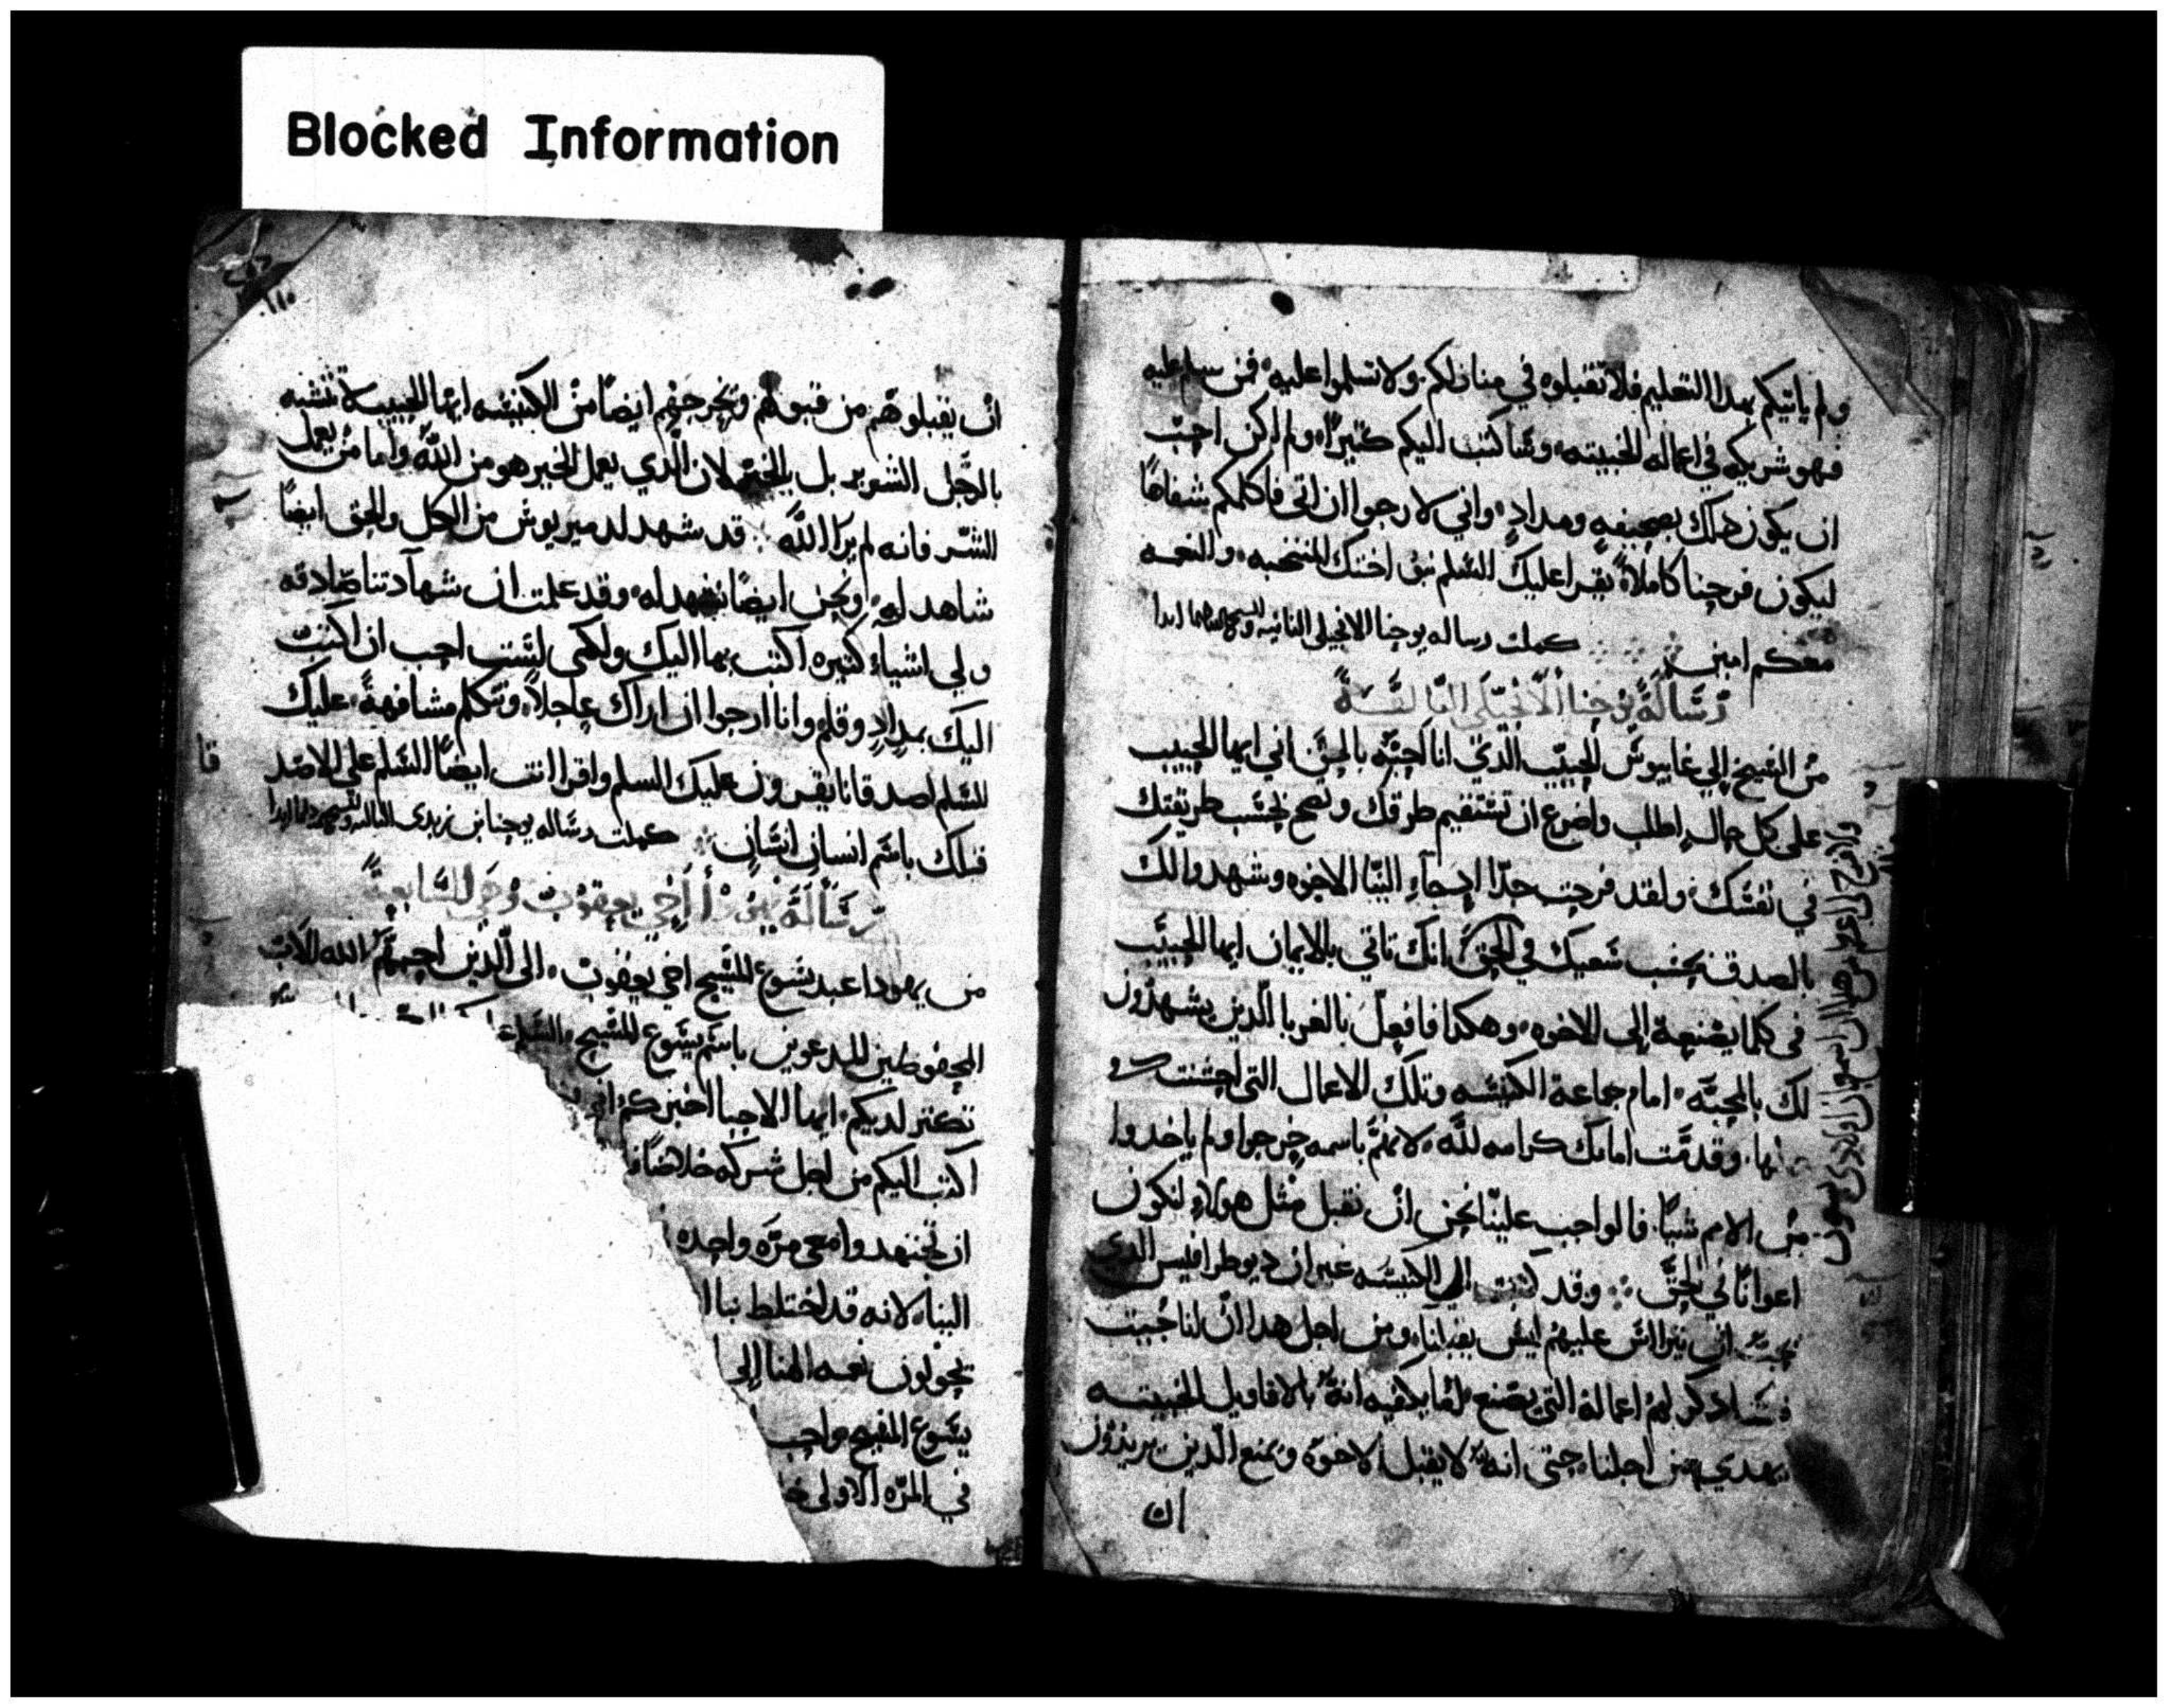 Blocked Information
ولم ياتيكم بهدا التعليم فلا تقبلوه في منازلكم ولا تسلموا عليه فمن سلم عليه
فهو شريكه في اعماله الخبيته وساكتب اليكم كتيرا ولم اكن احب
ان يكون دلك بصحيفه ومداد واني لارجوا ان اتي فاكلمكم شفاها
ليكون فرحنا كاملا يقرا عليك السلم بنو اختك المنتخبه والنعمه
معكم امين كملت رساله يوحنا الانجيلي التانيه
رسالة يوحنا الانجيلي التالته
من الشيخ الي غاييوس الحبيب الدي انا احبه بالحق اني ايها الحبيب
علي كل حال اطلب واضرع ان تستقيم طرقك وتصح بحسب طريقتك
في نفسك ولقد فرحت جدا اد جاء الينا الاخوه وشهدوا لك
بالصدق بحسب سعيك في الحق انك تاتي بالايمان ايها الحبيب
في كلما يصنعه الي الاخوه وهكدا فافعل بالغربا الدين يشهدون
لك بالمحبه امام جماعة الكنيسه وتلك الاعمال التي احسنت
بها وقدمت امامك كرامه لله لانهم باسمه خرجوا ولم ياخدوا
من الامم شيا فالواجب علينا نحن ان نقبل متل هولاء لنكون
اعوانا في الحق وقد كتبت الي الكنيسه غير ان ديوطرافيس الدي
يحب ان يتراس عليهم ليس يقبلنا ومن اجل هدا ان لنا جيت
فسادكر لهم اعماله التي يصنع لما يكفيه انه بالاقاويل الخبيته
يهدي من اجلنا حتي انه لا يقبل الاخوه ويمنع الدين يريدون
ان
ان يقبلوهم من قبولهم ويخرجهم ايضا من الكنيسه ايها الحبيب لا تتشبه
بالرجل الشرير بل بالخير لان الدي يعمل الخير هو من الله واما من يعمل
الشر فانه لم يرا الله قد شهد لدميريوش من الكل والحق ايضا
شاهد له ونحن ايضا نشهد له وقد علمت ان شهادتنا صادقه
ولي اشياء كتيره اكتب بها اليك ولكني لست احب ان اكتب
اليك بمداد وقلم وانا ارجوا ان اراك عاجلا ونتكلم مشافهة عليك
السلم اصدقانا يقرون عليك السلم واقرا انت ايضا السلم علي الاصد
قا
قبلك باسم انسان انسان كملت رساله يوحنا بن زبدي التالته
رسالة يهودا اخي يعقوب وهي السابعة
من يهودا عبد يسوع المسيح اخي يعقوب الي الدين احبهم الله الاب
المحفوطين المدعوين باسم يسوع المسيح والسلم
تكتر لديكم ايها الاحبا اخبركم اني
اكتب اليكم من اجل شركه خلاصنا
ان تجتهدوا معي مره واحده
الينا لانه قد اختلط بنا
يحولون نعمه الهنا الي
يسوع المسيح واحب
في المره الاولي